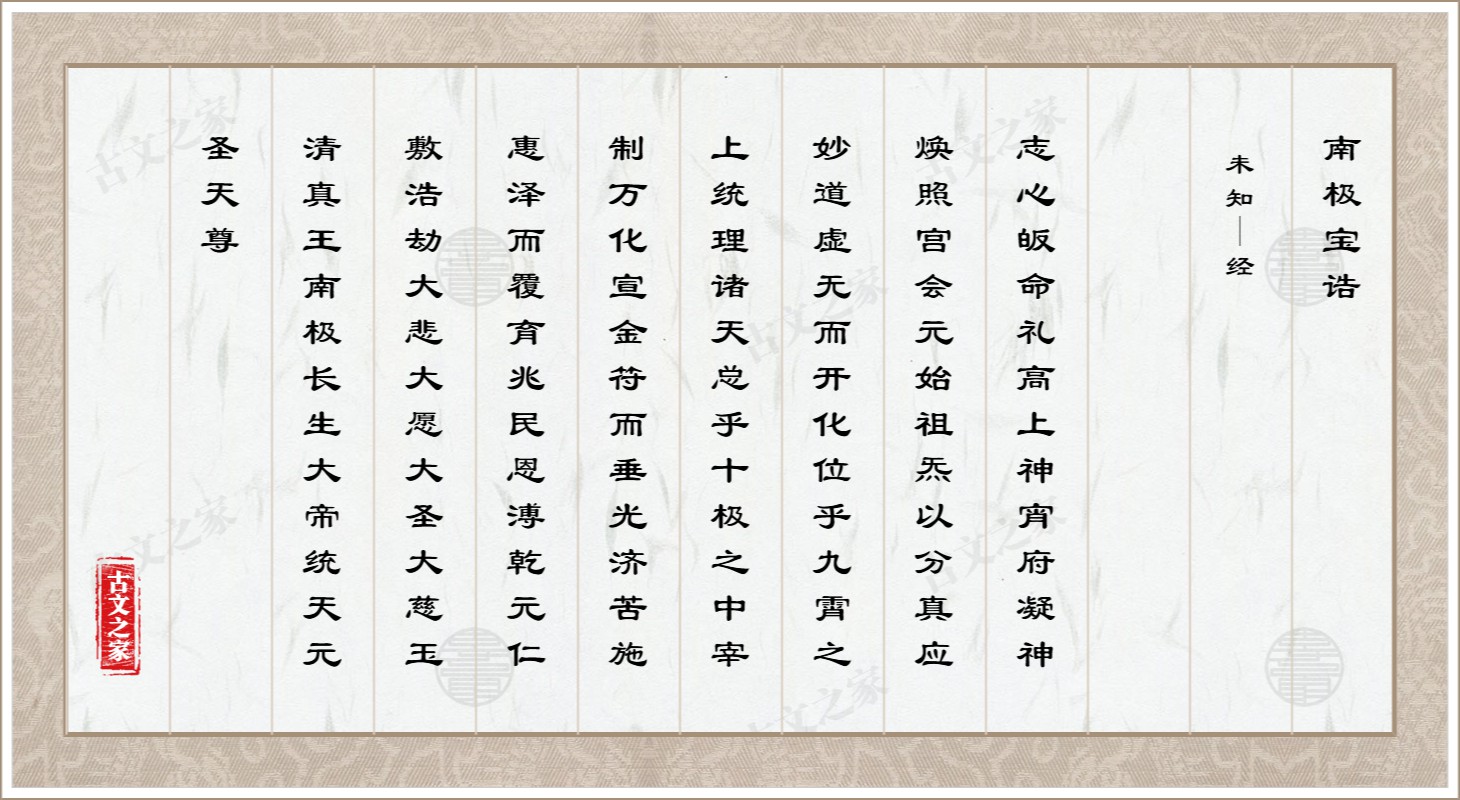 南极宝诰
未知—经
志心皈命礼高上神宵府凝神
焕照宫会元始祖炁以分真应
妙道虚无而开化位乎九霄之
上统理诸天总乎十极之中宰
制万化宣金符而垂光济苦施
惠泽而覆育兆民恩溥乾元仁
敷浩劫大悲大愿大圣大慈玉
清真王南极长生大帝统天元
圣天尊
古文之家